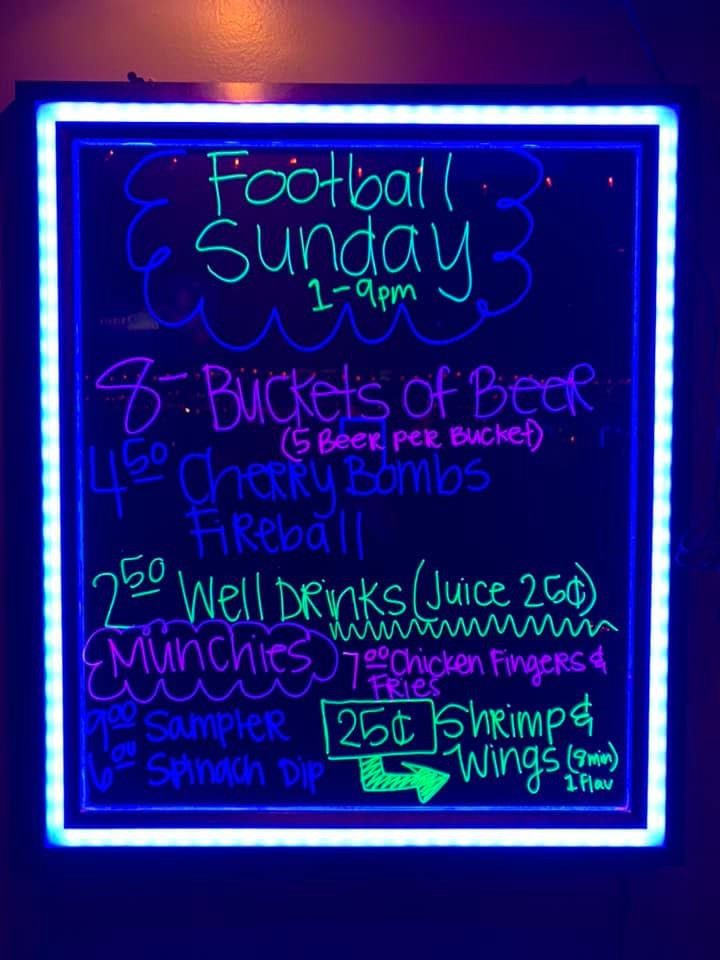 Football
Sunday
1-9pm
8- Buckets of Beer
(5 Beer per Bucket)
4 50 Cherry Bombs
Fireball
2 50 Well Drinks (Juice 25¢)
Munchies
7 00 Chicken Fingers &
Fries
9 00 Sampler
6 00 Spinach Dip
25¢ Shrimp &
Wings (8 min)
1 flav